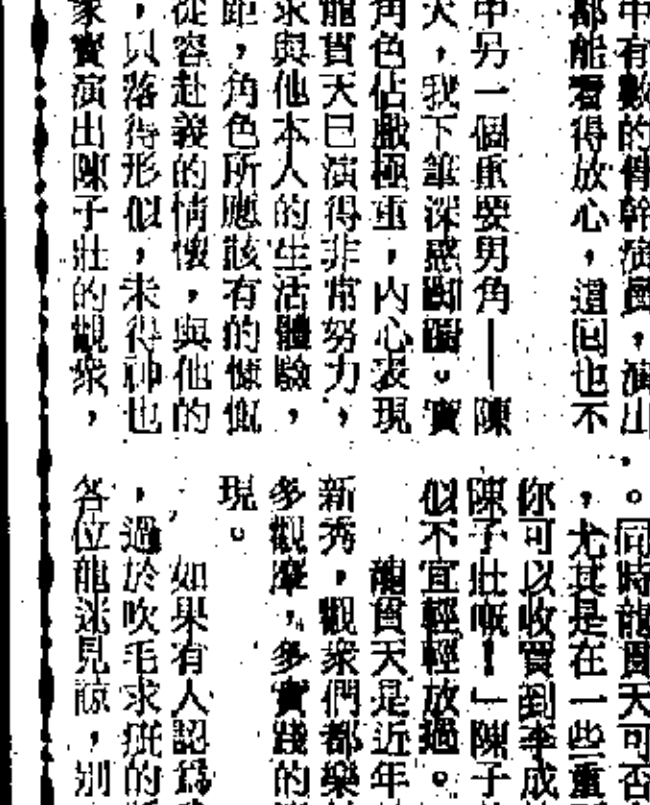 中有數的骨幹演員，演出
都能看得放心，這回也不
中另一個重要男角——陳
天，我下筆深感躊躇。實
角色佔戲極重，內心表現
龍貫天已演得非常努力，
求與他本人的生活體驗，
距，角色所應該有的慷慨
從容赴義的情懷，與他的
，只落得形似，未得神也
家賓演出陳子壯的觀衆，
。同時龍貫天可否
，尤其是在一些重
你可以收買到李成
陳子壯嘅！」陳子
似不宜輕輕放過。
龍貫天是近年
新秀，觀衆們都樂
多觀摩，多實踐的
現。
如果有人認爲
，過於吹毛求疵的
各位龍迷見諒，別